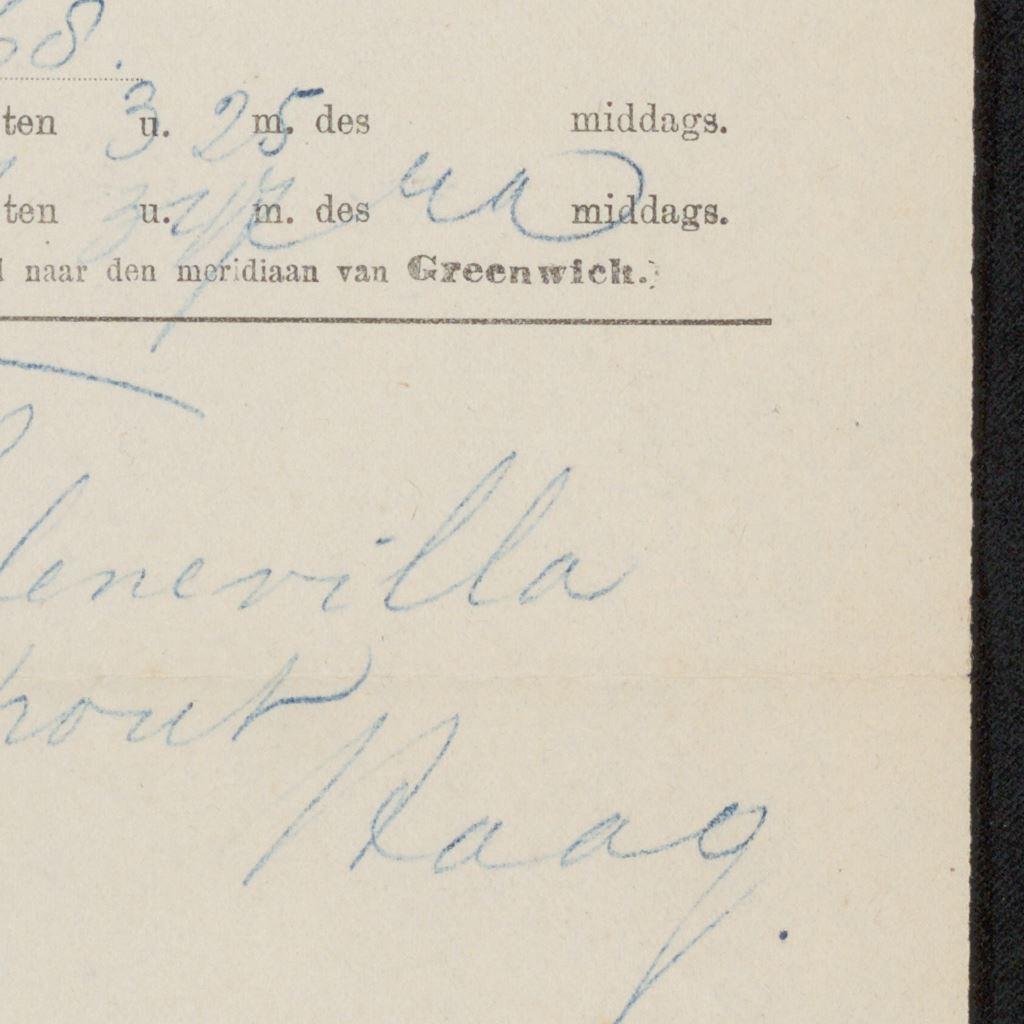 68.
ten 3 u. 25 m. des middags.
ten u. m. des na middags.
naar den meridiaan van Greenwich.)
lenevilla
hout
Haag.